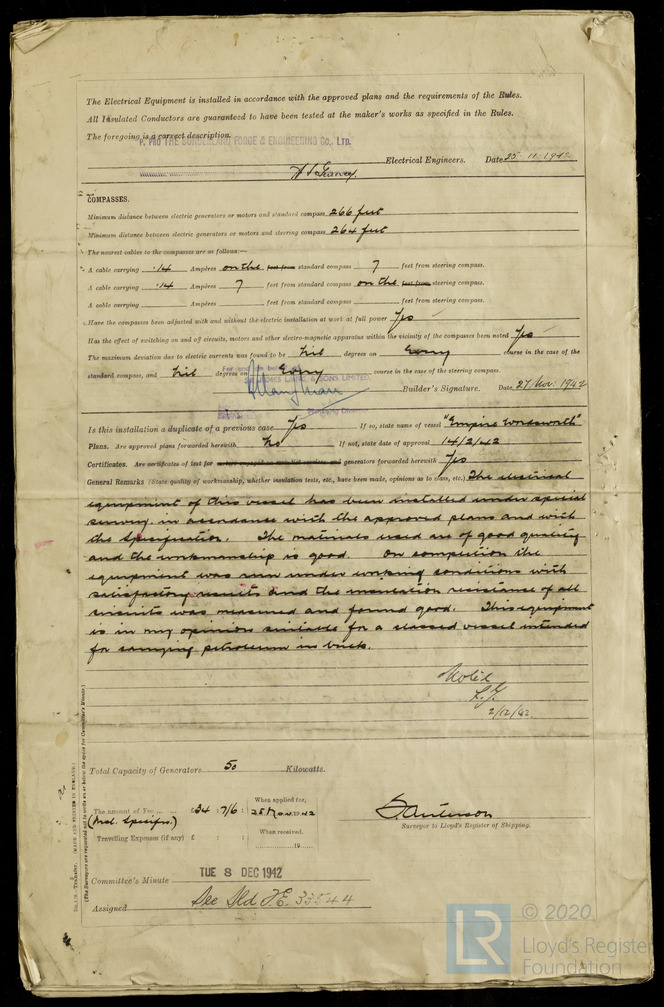 The Electrical Equipment is installed in accordance with the approved plans and the requirements of the Rules.
All Insulated Conductors are guaranteed to have been tested at the maker's works as specified in the Rules.
The foregoing is a correct description.
P. PRO THE SUNDERLAND FORGE & ENGINEERING Co., LTD.
Electrical Engineers. Date 25-11-1942
COMPASSES.
Minimum distance between electric generators or motors and standard compass 266 feet
Minimum distance between electric generators or motors and steering compass 264 feet
The nearest cables to the compasses are as follows:—
A cable carrying .14 Ampères on the feet from standard compass 7 feet from steering compass.
A cable carrying .14 Ampères 7 feet from standard compass on the feet from steering compass.
A cable carrying Ampères feet from standard compass feet from steering compass.
Have the compasses been adjusted with and without the electric installation at work at full power Yes
Has the effect of switching on and off circuits, motors and other electro-magnetic apparatus within the vicinity of the compasses been noted Yes
The maximum deviation due to electric currents was found to be Nil degrees on Every course in the case of the
standard compass, and Nil degrees on Every course in the case of the steering compass.
For and on behalf
SIR JAMES LAING & SONS LIMITED,
Builder's Signature. Date 27 Nov: 1942
Managing Director
Is this installation a duplicate of a previous case Yes If so, state name of vessel "Empire Wordsworth"
Plans. Are approved plans forwarded herewith No If not, state date of approval 14/2/42
Certificates. Are certificates of test for generators forwarded herewith Yes
General Remarks (State quality of workmanship, whether insulation tests, etc., have been made, opinions as to class, etc.) The electrical
equipment of this vessel has been installed under special
survey in accordance with the approved plans and with
the Specification. The materials used are of good quality
and the workmanship is good. On completion the
equipment was run under working conditions with
satisfactory results and the insulation resistance of all
circuits was measured and found good. This equipment
is in my opinion suitable for a classed vessel intended
for carrying petroleum in bulk.
Noted
2/12/42
Total Capacity of Generators 50 Kilowatts.
The amount of Fee ... £34 : 7/6 : When applied for, 25 Nov. 1942
(Incl. Specifn.)
Travelling Expenses (if any) £ : : When received, 19
Surveyor to Lloyd's Register of Shipping.
TUE 8 DEC 1942
Committee's Minute
Assigned See Sld F.E. 33544
(MADE AND PRINTED IN ENGLAND.)
(The Surveyors are requested not to write on or below the space for Committee's Minute.)
LR
© 2020
Lloyd's Register
Foundation